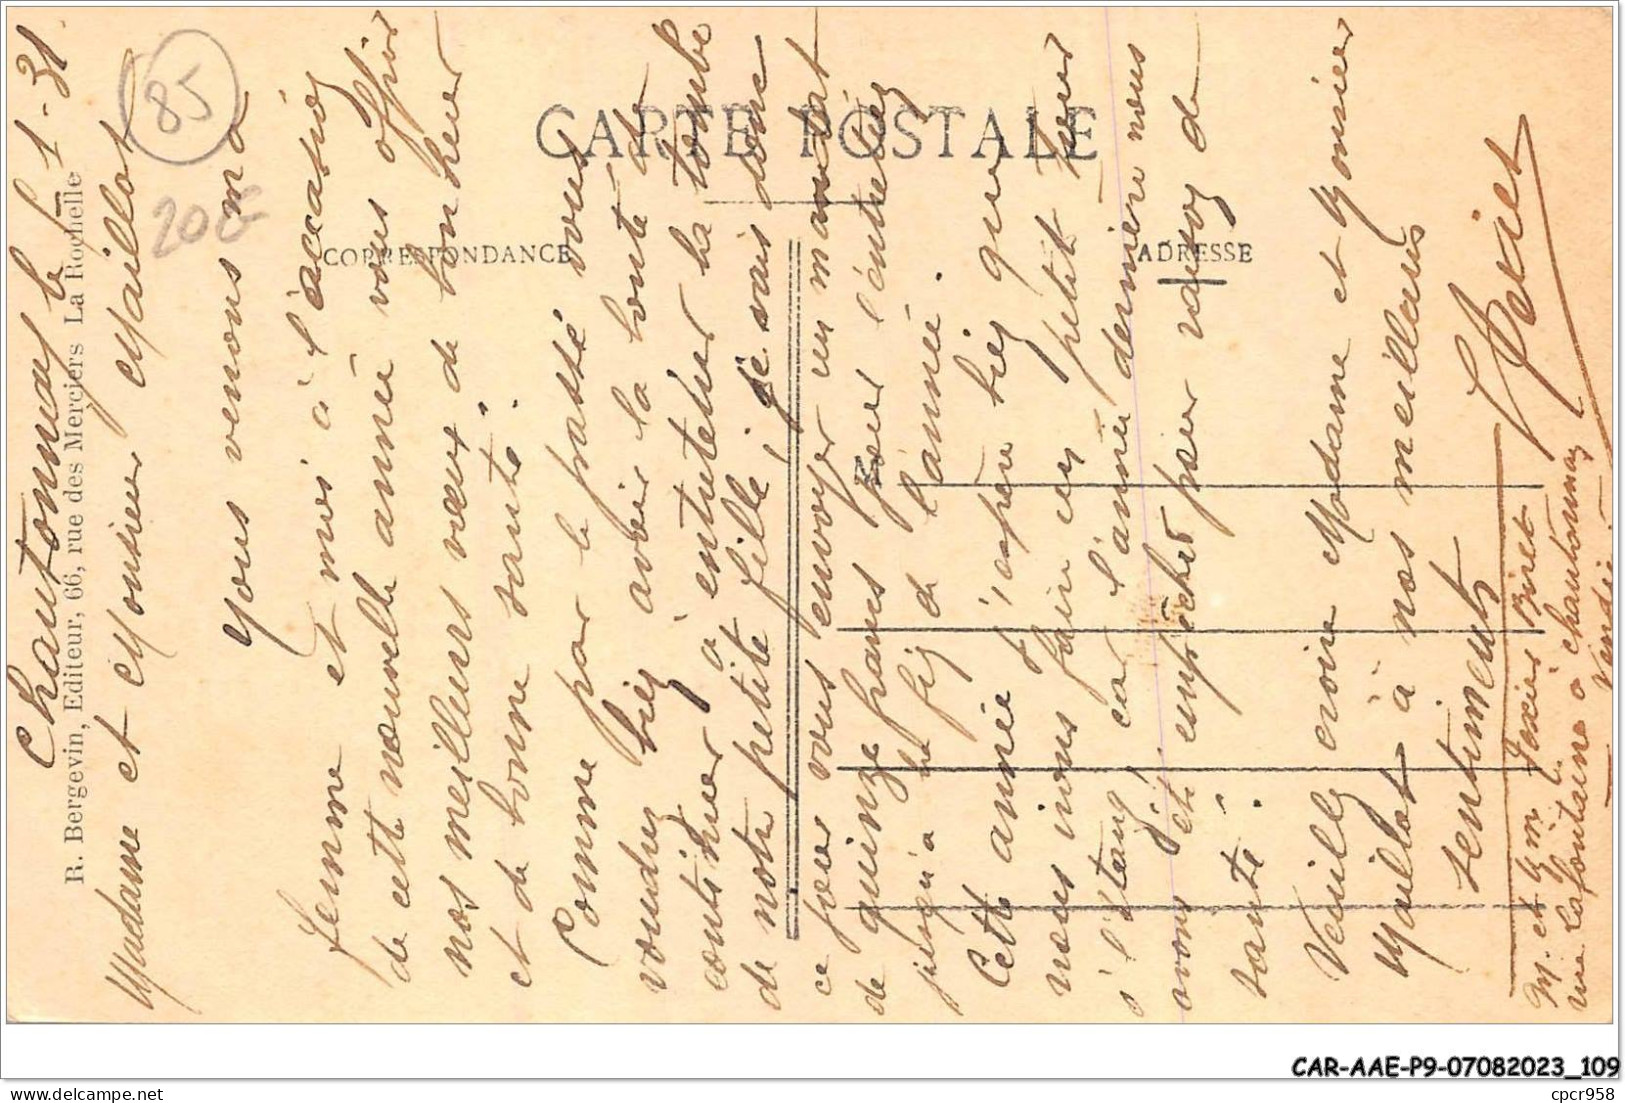 Chantonnay le 1-1-31
Madame et Monsieur Maillot
Vous venons ma
femme et moi à l'occasion
de cette nouvelle année vous offrir
nos meilleurs vœux de bonheur
et de bonne santé.
Comme par le passé vous
voudrez bien avoir la bonté de
continuer à entretenir la tombe
de notre petite fille, je vais donc
ce jour vous envoyer un mandat
de quinze francs pour l'entretien
jusqu'a la fin de l'année.
Cette année j'espère bien que
nous irons faire un petit tour
s l'étang, car l'année dernière nous
avons été empêchés pour raison de
santé.
Veuillez croire Madame et Monsieur
Maillot à nos meilleurs
sentiments
M. et Mme Texier Binet
rue Lafontaine à Chantonnay
Vendée
R. Bergevin, Editeur, 66, rue des Merciers La Rochelle
85
20E
CARTE POSTALE
CORRESPONDANCE
ADRESSE
CAR-AAE-P9-07082023_109
cpcr958